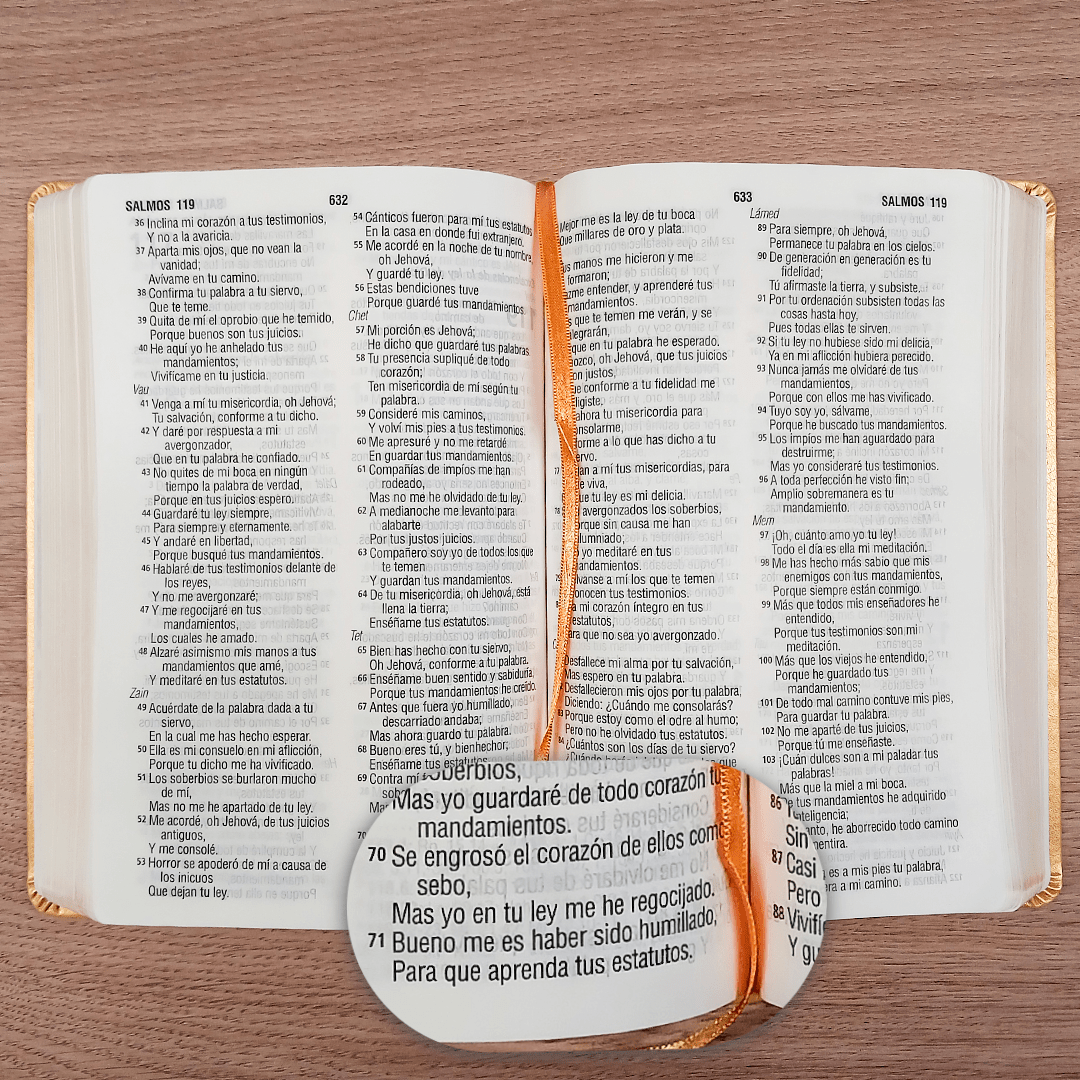 SALMOS 119
632
36 Inclina mi corazón a tus testimonios,
Y no a la avaricia.
37 Aparta mis ojos, que no vean la
vanidad;
Avívame en tu camino.
38 Confirma tu palabra a tu siervo,
Que te teme.
39 Quita de mí el oprobio que he temido,
Porque buenos son tus juicios.
40 He aquí yo he anhelado tus
mandamientos;
Vivifícame en tu justicia.
Vau
41 Venga a mí tu misericordia, oh Jehová;
Tu salvación, conforme a tu dicho.
42 Y daré por respuesta a mi
avergonzador,
Que en tu palabra he confiado.
43 No quites de mi boca en ningún
tiempo la palabra de verdad,
Porque en tus juicios espero.
44 Guardaré tu ley siempre,
Para siempre y eternamente.
45 Y andaré en libertad,
Porque busqué tus mandamientos.
46 Hablaré de tus testimonios delante de
los reyes,
Y no me avergonzaré;
47 Y me regocijaré en tus
mandamientos,
Los cuales he amado.
48 Alzaré asimismo mis manos a tus
mandamientos que amé,
Y meditaré en tus estatutos.
Zain
49 Acuérdate de la palabra dada a tu
siervo,
En la cual me has hecho esperar.
50 Ella es mi consuelo en mi aflicción,
Porque tu dicho me ha vivificado.
51 Los soberbios se burlaron mucho
de mí,
Mas no me he apartado de tu ley.
52 Me acordé, oh Jehová, de tus juicios
antiguos,
Y me consolé.
53 Horror se apoderó de mí a causa de
los inicuos
Que dejan tu ley.
54 Cánticos fueron para mí tus estatutos
En la casa en donde fui extranjero.
55 Me acordé en la noche de tu nombre,
oh Jehová,
Y guardé tu ley.
56 Estas bendiciones tuve
Porque guardé tus mandamientos.
Chet
57 Mi porción es Jehová;
He dicho que guardaré tus palabras.
58 Tu presencia supliqué de todo
corazón;
Ten misericordia de mí según tu
palabra.
59 Consideré mis caminos,
Y volví mis pies a tus testimonios.
60 Me apresuré y no me retardé
En guardar tus mandamientos.
61 Compañías de impíos me han
rodeado,
Mas no me he olvidado de tu ley.
62 A medianoche me levanto para
alabarte
Por tus justos juicios.
63 Compañero soy yo de todos los que
te temen
Y guardan tus mandamientos.
64 De tu misericordia, oh Jehová, está
llena la tierra;
Enséñame tus estatutos.
Tet
65 Bien has hecho con tu siervo,
Oh Jehová, conforme a tu palabra.
66 Enséñame buen sentido y sabiduría,
Porque tus mandamientos he creído.
67 Antes que fuera yo humillado,
descarriado andaba;
Mas ahora guardo tu palabra.
68 Bueno eres tú, y bienhechor;
Enséñame tus estatutos.
69 Contra mí
soberbios,
Mas yo guardaré de todo corazón
mandamientos.
70 Se engrosó el corazón de ellos como
sebo,
Mas yo en tu ley me he regocijado.
71 Bueno me es haber sido humillado,
Para que aprenda tus estatutos.
633
SALMOS 119
Mejor me es la ley de tu boca
Que millares de oro y plata.
manos me hicieron y me
formaron;
entender, y aprenderé tus
mandamientos.
que te temen me verán, y se
alegrarán,
en tu palabra he esperado.
oh Jehová, que tus juicios
justos,
conforme a tu fidelidad me
ahora tu misericordia para
a lo que has dicho a tu
a mí tus misericordias, para
viva,
tu ley es mi delicia.
avergonzados los soberbios,
sin causa me han
yo meditaré en tus
a mí los que te temen
conocen tus testimonios.
mi corazón íntegro en tus
estatutos,
que no sea yo avergonzado.
Desfallece mi alma por tu salvación,
Mas espero en tu palabra.
Desfallecieron mis ojos por tu palabra,
Diciendo: ¿Cuándo me consolarás?
Porque estoy como el odre al humo;
Pero no he olvidado tus estatutos.
84 ¿Cuántos son los días de tu siervo?
¿Cuándo
que
86
Sin
87 Casi
Pero
88
Y
Lámed
89 Para siempre, oh Jehová,
Permanece tu palabra en los cielos.
90 De generación en generación es tu
fidelidad;
Tú afirmaste la tierra, y subsiste.
91 Por tu ordenación subsisten todas las
cosas hasta hoy,
Pues todas ellas te sirven.
92 Si tu ley no hubiese sido mi delicia,
Ya en mi aflicción hubiera perecido.
93 Nunca jamás me olvidaré de tus
mandamientos,
Porque con ellos me has vivificado.
94 Tuyo soy yo, sálvame,
Porque he buscado tus mandamientos.
95 Los impíos me han aguardado para
destruirme;
Mas yo consideraré tus testimonios.
96 A toda perfección he visto fin;
Amplio sobremanera es tu
mandamiento.
Mem
97 ¡Oh, cuánto amo yo tu ley!
Todo el día es ella mi meditación.
98 Me has hecho más sabio que mis
enemigos con tus mandamientos,
Porque siempre están conmigo.
99 Más que todos mis enseñadores he
entendido,
Porque tus testimonios son mi
meditación.
100 Más que los viejos he entendido,
Porque he guardado tus
mandamientos;
101 De todo mal camino contuve mis pies,
Para guardar tu palabra.
102 No me aparté de tus juicios,
Porque tú me enseñaste.
103 ¡Cuán dulces son a mi paladar tus
palabras!
Más que la miel a mi boca.
tus mandamientos he adquirido
inteligencia;
he aborrecido todo camino
mentira.
es a mis pies tu palabra,
a mi camino.